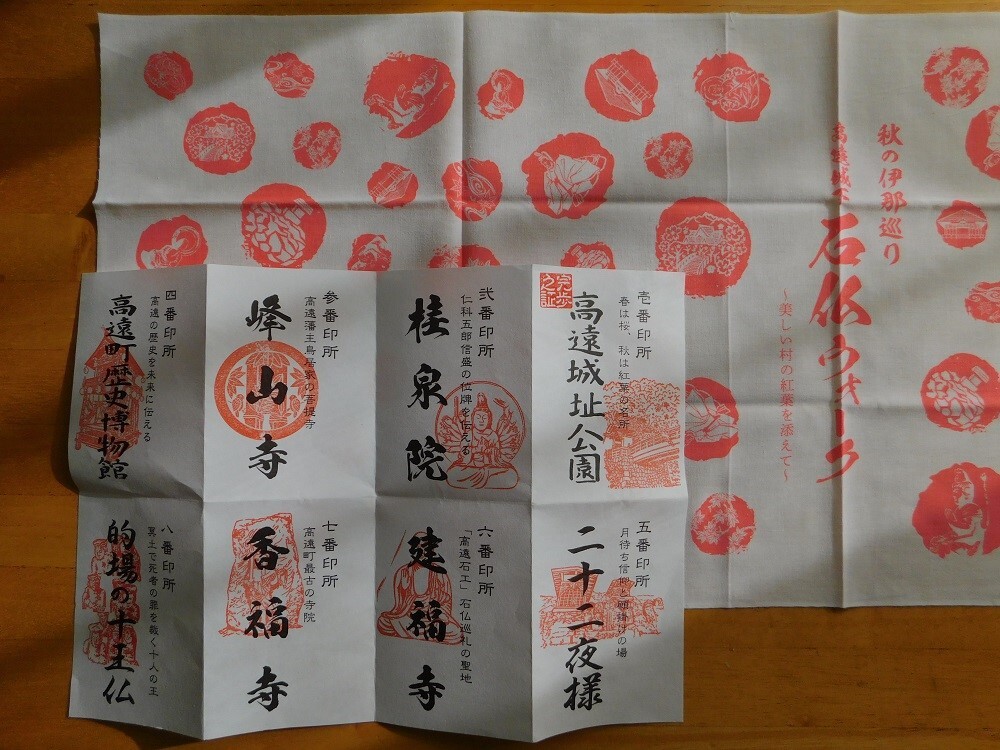 秋の伊那巡り
高遠城下
石仏ウォーク
～美しい村の紅葉を添えて～
壱番印所
春は桜、秋は紅葉の名所
高遠城址公園
弐番印所
仁科五郎信盛の位牌を伝える
桂泉院
参番印所
高遠藩主鳥居家の菩提寺
峰山寺
四番印所
高遠の歴史を未来に伝える
高遠町歴史博物館
五番印所
月待ち信仰と願掛けの場
二十二夜様
六番印所
「高遠石工」石仏巡礼の聖地
建福寺
七番印所
高遠町最古の寺院
香福寺
八番印所
冥土で死者の罪を裁く十人の王
的場の十王仏